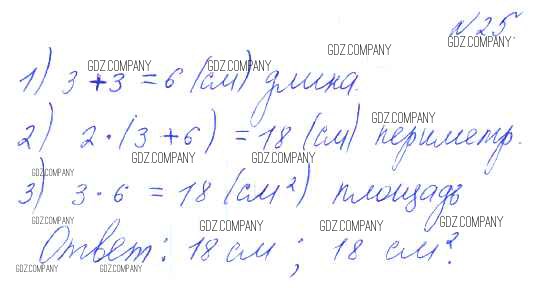 №25.
GDZ.COMPANY
GDZ.COMPANY
GDZ.COMPANY GDZ.COMPANY
1) 3 + 3 = 6 (см) длина.
GDZ.COMPANY
2) 2 · (3 + 6) = 18 (см) периметр.
GDZ.COMPANY GDZ.COMPANY
GDZ.COMPANY
3) 3 · 6 = 18 (см²) площадь
GDZ.COMPANY GDZ.COMPANY GDZ.COMPANY GDZ.COMPANY
Ответ: 18 см; 18 см².
GDZ.COMPANY GDZ.COMPANY